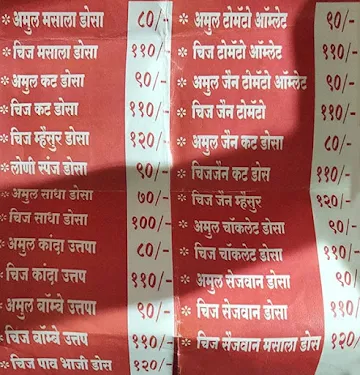 अमुल मसाला डोसा ८०/-
* चिज मसाला डोसा ११०/-
* अमुल कट डोसा ९०/-
* चिज कट डोसा ११०/-
* चिज म्हैसुर डोसा १२०/-
* लोणी स्पंज डोसा ९०/-
* अमुल साधा डोसा ७०/-
* चिज साधा डोसा १००/-
* अमुल कांदा उत्तपा ८०/-
* चिज कांदा उत्तपा ११०/-
* अमुल बॉम्बे उत्तपा ९०/-
* चिज बॉम्बे उत्तपा ११०/-
* चिज पाव भाजी डोस १२०/-
* अमुल टोमॅटो ऑम्लेट ९०/-
* चिज टोमॅटो ऑम्लेट ११०/-
* अमुल जैन टोमॅटो ऑम्लेट ९०/-
* चिज जैन टोमॅटो ११०/-
* अमुल जैन कट डोसा ८०/-
* चिजजैन कट डोस ११०/-
* चिज जैन म्हैसुर १२०/-
* अमुल चॉकलेट डोसा ९०/-
* चिज चॉकलेट डोसा ११०/-
* अमुल सेजवान डोसा ९०/-
* चिज सेजवान डोसा ११०/-
* चिज सेजवान मसाला डोसा १२०/-